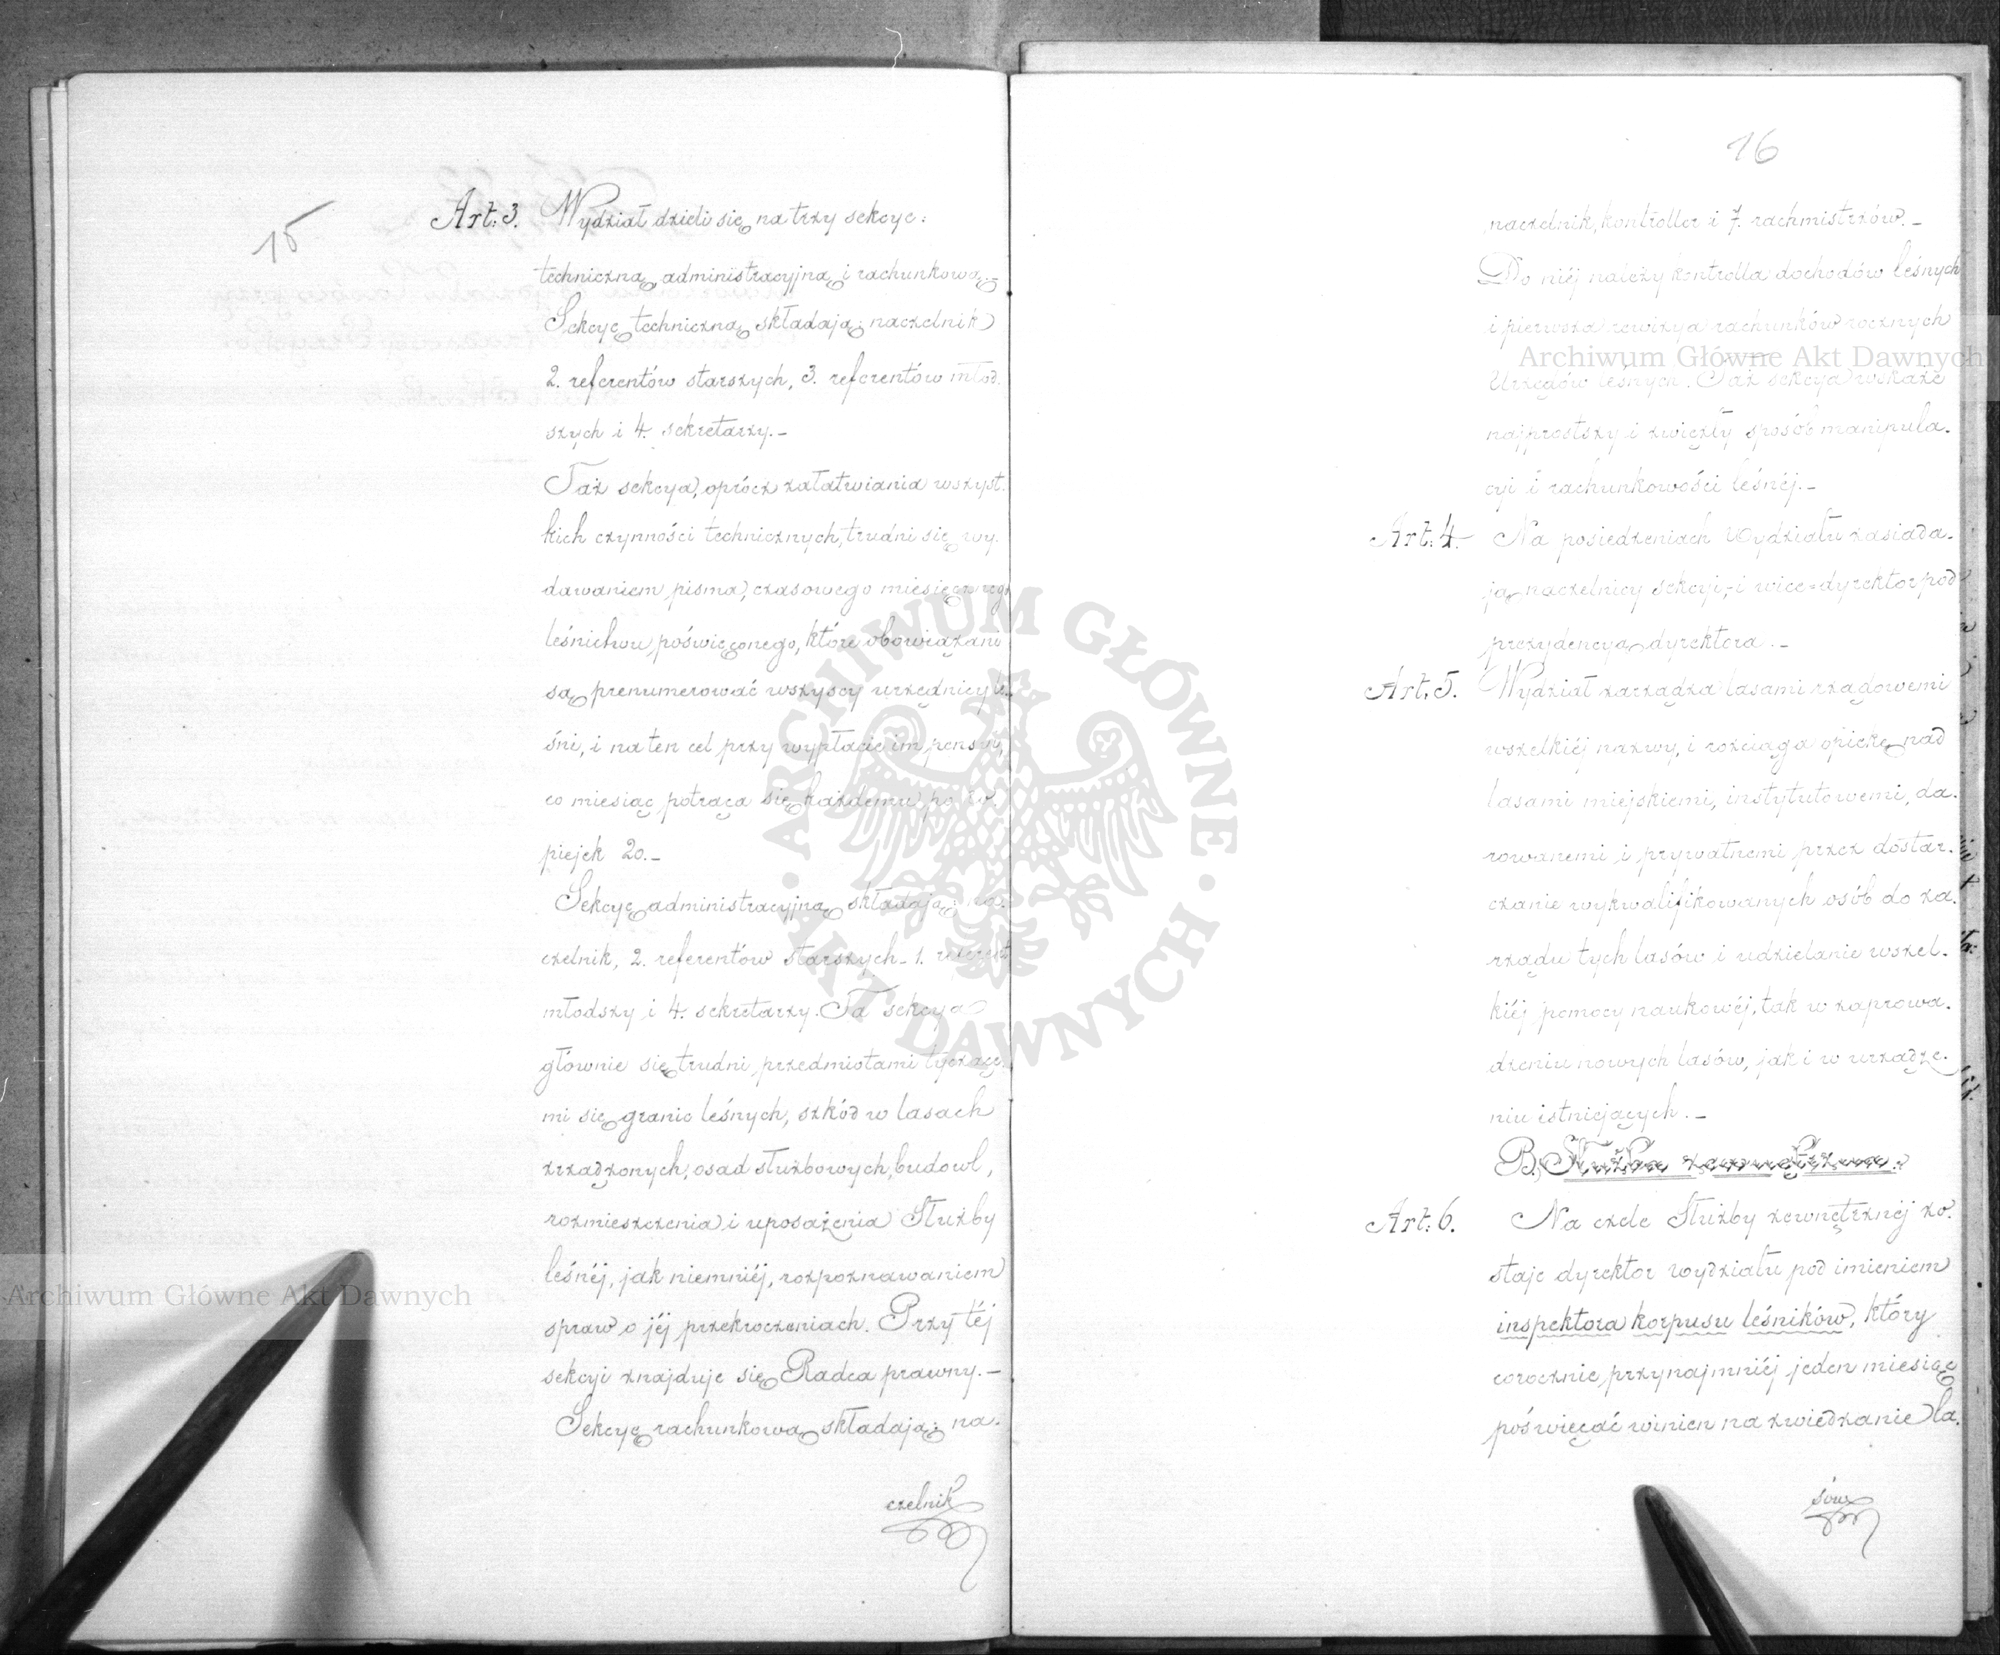 15
Art: 3. Wydział dzieli się na trzy sekcye:
techniczną, administracyjną i rachunkową.-
Sekcyę techniczną składają: naczelnik
2. referentów starszych, 3. referentów młod.
szych i 4. sekretarzy.-
Taż sekcya, oprócz załatwiania wszyst.
kich czynności technicznych, trudni się wy.
dawaniem pisma, czasowego miesięcznego
leśnictwu poświęconego, które obowiązani
są prenumerować wszyscy urzędnicy le.
śni, i na ten cel przy wypłacie im pensyi,
co miesiąc potrąca się każdemu po ko.
piejek 20.-
Sekcyę administracyjną składają: na.
czelnik, 2. referentów starszych - 1. referent
młodszy i 4. sekretarzy. Ta sekcya
głównie się trudni przedmiotami tyczące.
mi się granic leśnych, szkód w lasach
zrządzonych, osad służbowych, budowl,
rozmieszczenia i uposażenia Służby
leśnéj, jak niemniéj, rozpoznawaniem
spraw o jéj przekroczeniach. Przy téj
sekcyi znajduje się Radca prawny.-
Sekcyę rachunkową składają: na.
czelnik
16
naczelnik, kontroller i 7. rachmistrzów.-
Do niéj należy kontrolla dochodów leśnych
i pierwsza rewizya rachunków rocznych
Urzędów leśnych. Taż sekcya wskaże
najprostszy i zwięzły sposób manipula.
cyi i rachunkowości leśnéj.-
Art: 4. Na posiedzeniach Wydziału zasiada.
ją naczelnicy sekcyi, i wice-dyrektor pod
prezydencyą dyrektora.-
Art: 5. Wydział zarządza lasami rządowemi
wszelkiéj nazwy, i rozciąga opiekę nad
lasami miejskiemi, instytutowemi, da.
rowanemi i prywatnemi przez dostar.
czanie wykwalifikowanych osób do za.
rządu tych lasów i udzielanie wszel.
kiéj pomocy naukowéj, tak w zaprowa.
dzeniu nowych lasów, jak i w urządze.
niu istniejących.-
B. Służba zewnętrzna.
Art: 6. Na czele Służby zewnętrznéj zo.
staje dyrektor wydziału pod imieniem
inspektora korpusu leśników, który
corocznie przynajmniéj jeden miesiąc
poświęcać winien na zwiedzanie la.
sów
Archiwum Główne Akt Dawnych
Archiwum Główne Akt Dawnych
ARCHIWUM GŁÓWNE AKT DAWNYCH